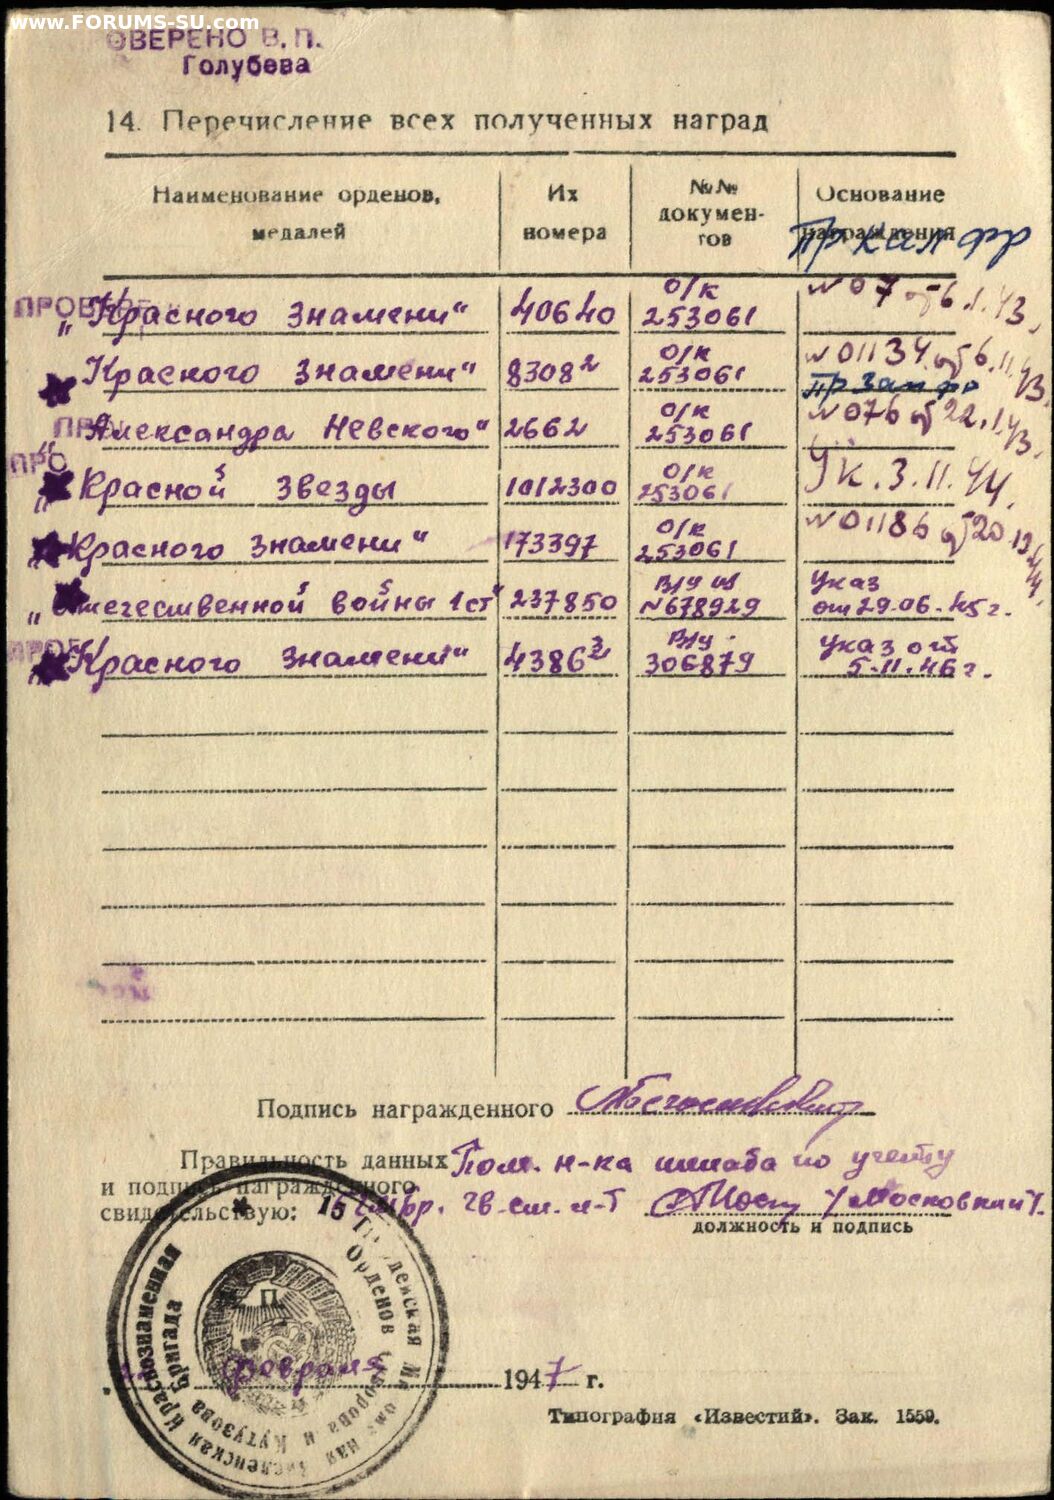 www.FORUMS-SU.com
ОВЕРЕНО В. П.
Голубева
14. Перечисление всех полученных наград
Наименование орденов, медалей | Их номера | №№ докумен-тов | Основание награждения
Пр Кал фр
„Красного Знамени" 40640 О/К 253061 №07 об 6.1.43.
Красного Знамени" 83082 О/К 253061 №01134 об 6.11.43.
Александра Невского" 2662 О/К 253061 №076 об 22.1.43.
„Красной Звезды 1012300 О/К 253061 Ук. 3.11.44.
„Красного Знамени" 173397 О/К 253061 №01186 об 20
„Отечественной войны 1 ст" 237850 №678929 Указ от 29.06.45 г.
„Красного Знамени" 4386 В/у 306879 Указ от 5.11.46 г.
Подпись награжденного
Правильность данных Пом. н-ка штаба по учету
и подпись награжденного
свидетельствую: гв. ст. л-т /Московкин/.
должность и подпись
Краснознаменная
Орденов Суворова и Кутузова Бригада
февраля 1947 г.
Типография «Известий». Зак. 1559.